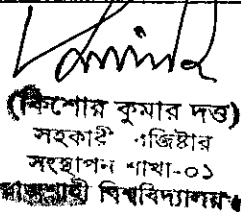 (কিশোর কুমার দত্ত)
সহকারী রেজিষ্টার
সংস্থাপন শাখা-০১
রাজশাহী বিশ্ববিদ্যালয়।